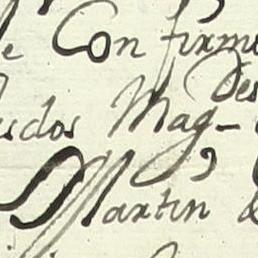 e Confirm
Des
sdos Mag-
Martin